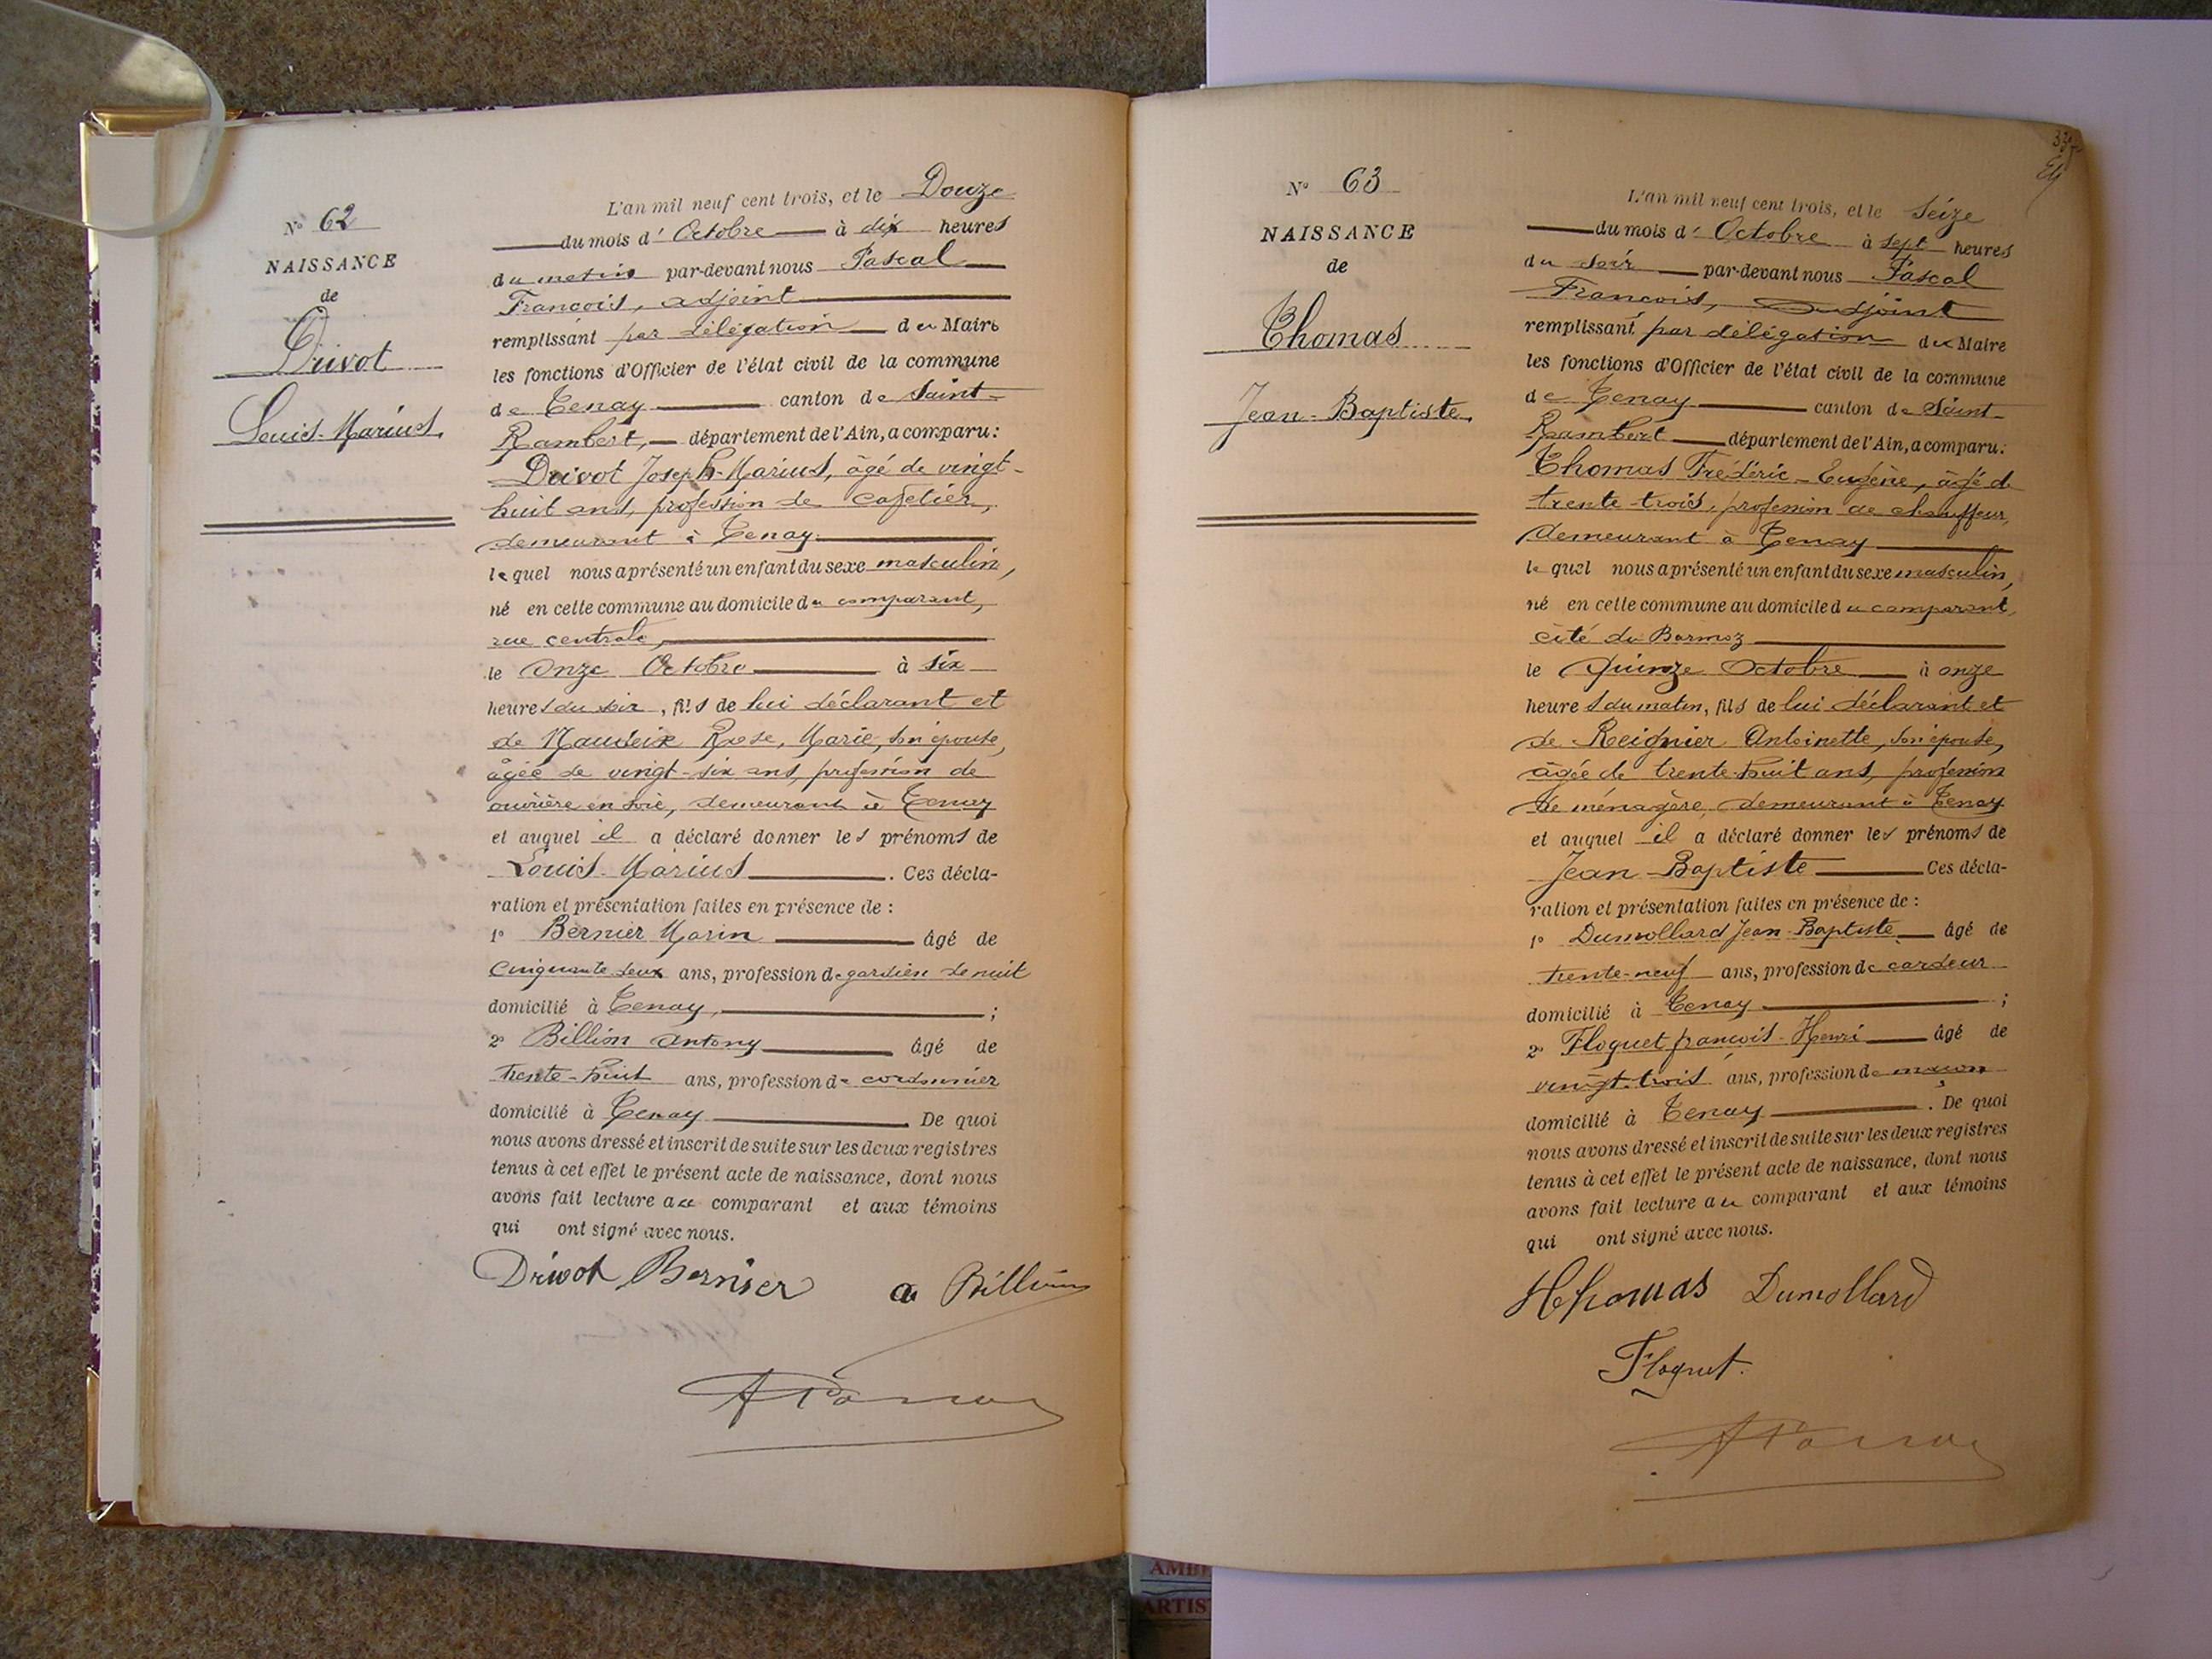 N° 62
NAISSANCE
de
Drivot
Louis-Marius.
L'an mil neuf cent trois, et le Douze
du mois d'Octobre à dix heures
du matin par-devant nous Pascal
François, adjoint
remplissant par délégation du Maire
les fonctions d'Officier de l'état civil de la commune
de Tenay canton de Saint-
Rambert, département de l'Ain, a comparu:
Drivot Joseph-Marius, âgé de vingt-
huit ans, profession de cafetier,
demeurant à Tenay
lequel nous a présenté un enfant du sexe masculin,
né en cette commune au domicile du comparant,
rue centrale,
le onze Octobre à six
heures du soir, fils de lui déclarant et
de Rose, Marie, son épouse,
âgée de vingt-six ans, profession de
ouvrière en soie, demeurant à Tenay
et auquel il a déclaré donner les prénoms de
Louis-Marius. Ces décla-
ration et présentation faites en présence de :
1° Bernier Marin âgé de
cinquante deux ans, profession de gardien de nuit
domicilié à Tenay, ;
2° Billion Antony âgé de
trente-huit ans, profession de cordonnier
domicilié à Tenay. De quoi
nous avons dressé et inscrit de suite sur les deux registres
tenus à cet effet le présent acte de naissance, dont nous
avons fait lecture au comparant et aux témoins
qui ont signé avec nous.
Drivot Bernier a Billion
N° 63
NAISSANCE
de
Thomas
Jean-Baptiste.
L'an mil neuf cent trois, et le seize
du mois d'Octobre à sept heures
du soir par-devant nous Pascal
François, adjoint
remplissant par délégation du Maire
les fonctions d'Officier de l'état civil de la commune
de Tenay canton de Saint-
Rambert département de l'Ain, a comparu:
Thomas Frédéric-Eugène, âgé de
trente-trois, profession de chauffeur,
demeurant à Tenay
lequel nous a présenté un enfant du sexe masculin,
né en cette commune au domicile du comparant,
cité du Barmoz
le Quinze Octobre à onze
heures du matin, fils de lui déclarant et
de Reignier Antoinette, son épouse,
âgée de trente-huit ans, profession
de ménagère, demeurant à Tenay
et auquel il a déclaré donner les prénoms de
Jean-Baptiste Ces décla-
ration et présentation faites en présence de :
1° Dumollard Jean-Baptiste âgé de
trente-neuf ans, profession de cardeur
domicilié à Tenay ;
2° Floquet françois-Henri âgé de
vingt-trois ans, profession de maçon
domicilié à Tenay. De quoi
nous avons dressé et inscrit de suite sur les deux registres
tenus à cet effet le présent acte de naissance, dont nous
avons fait lecture au comparant et aux témoins
qui ont signé avec nous.
Thomas Dumollard
Floquet.